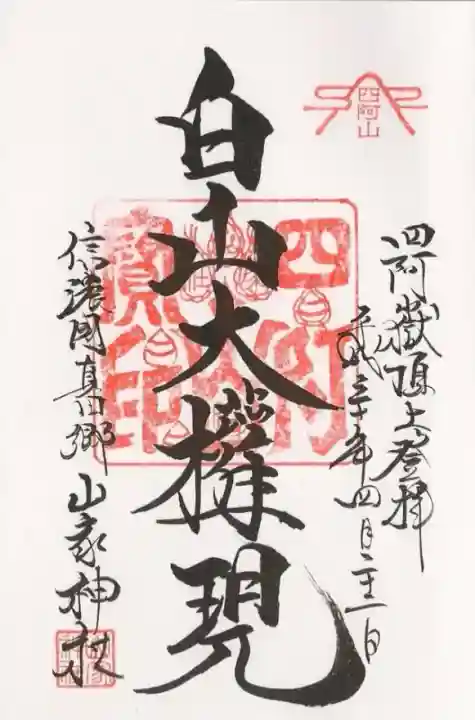 四阿山
四阿嶽頂上登拝
平成三十年四月二十一日
白山大権現
四阿寶印
信濃国真田郷 山家神社